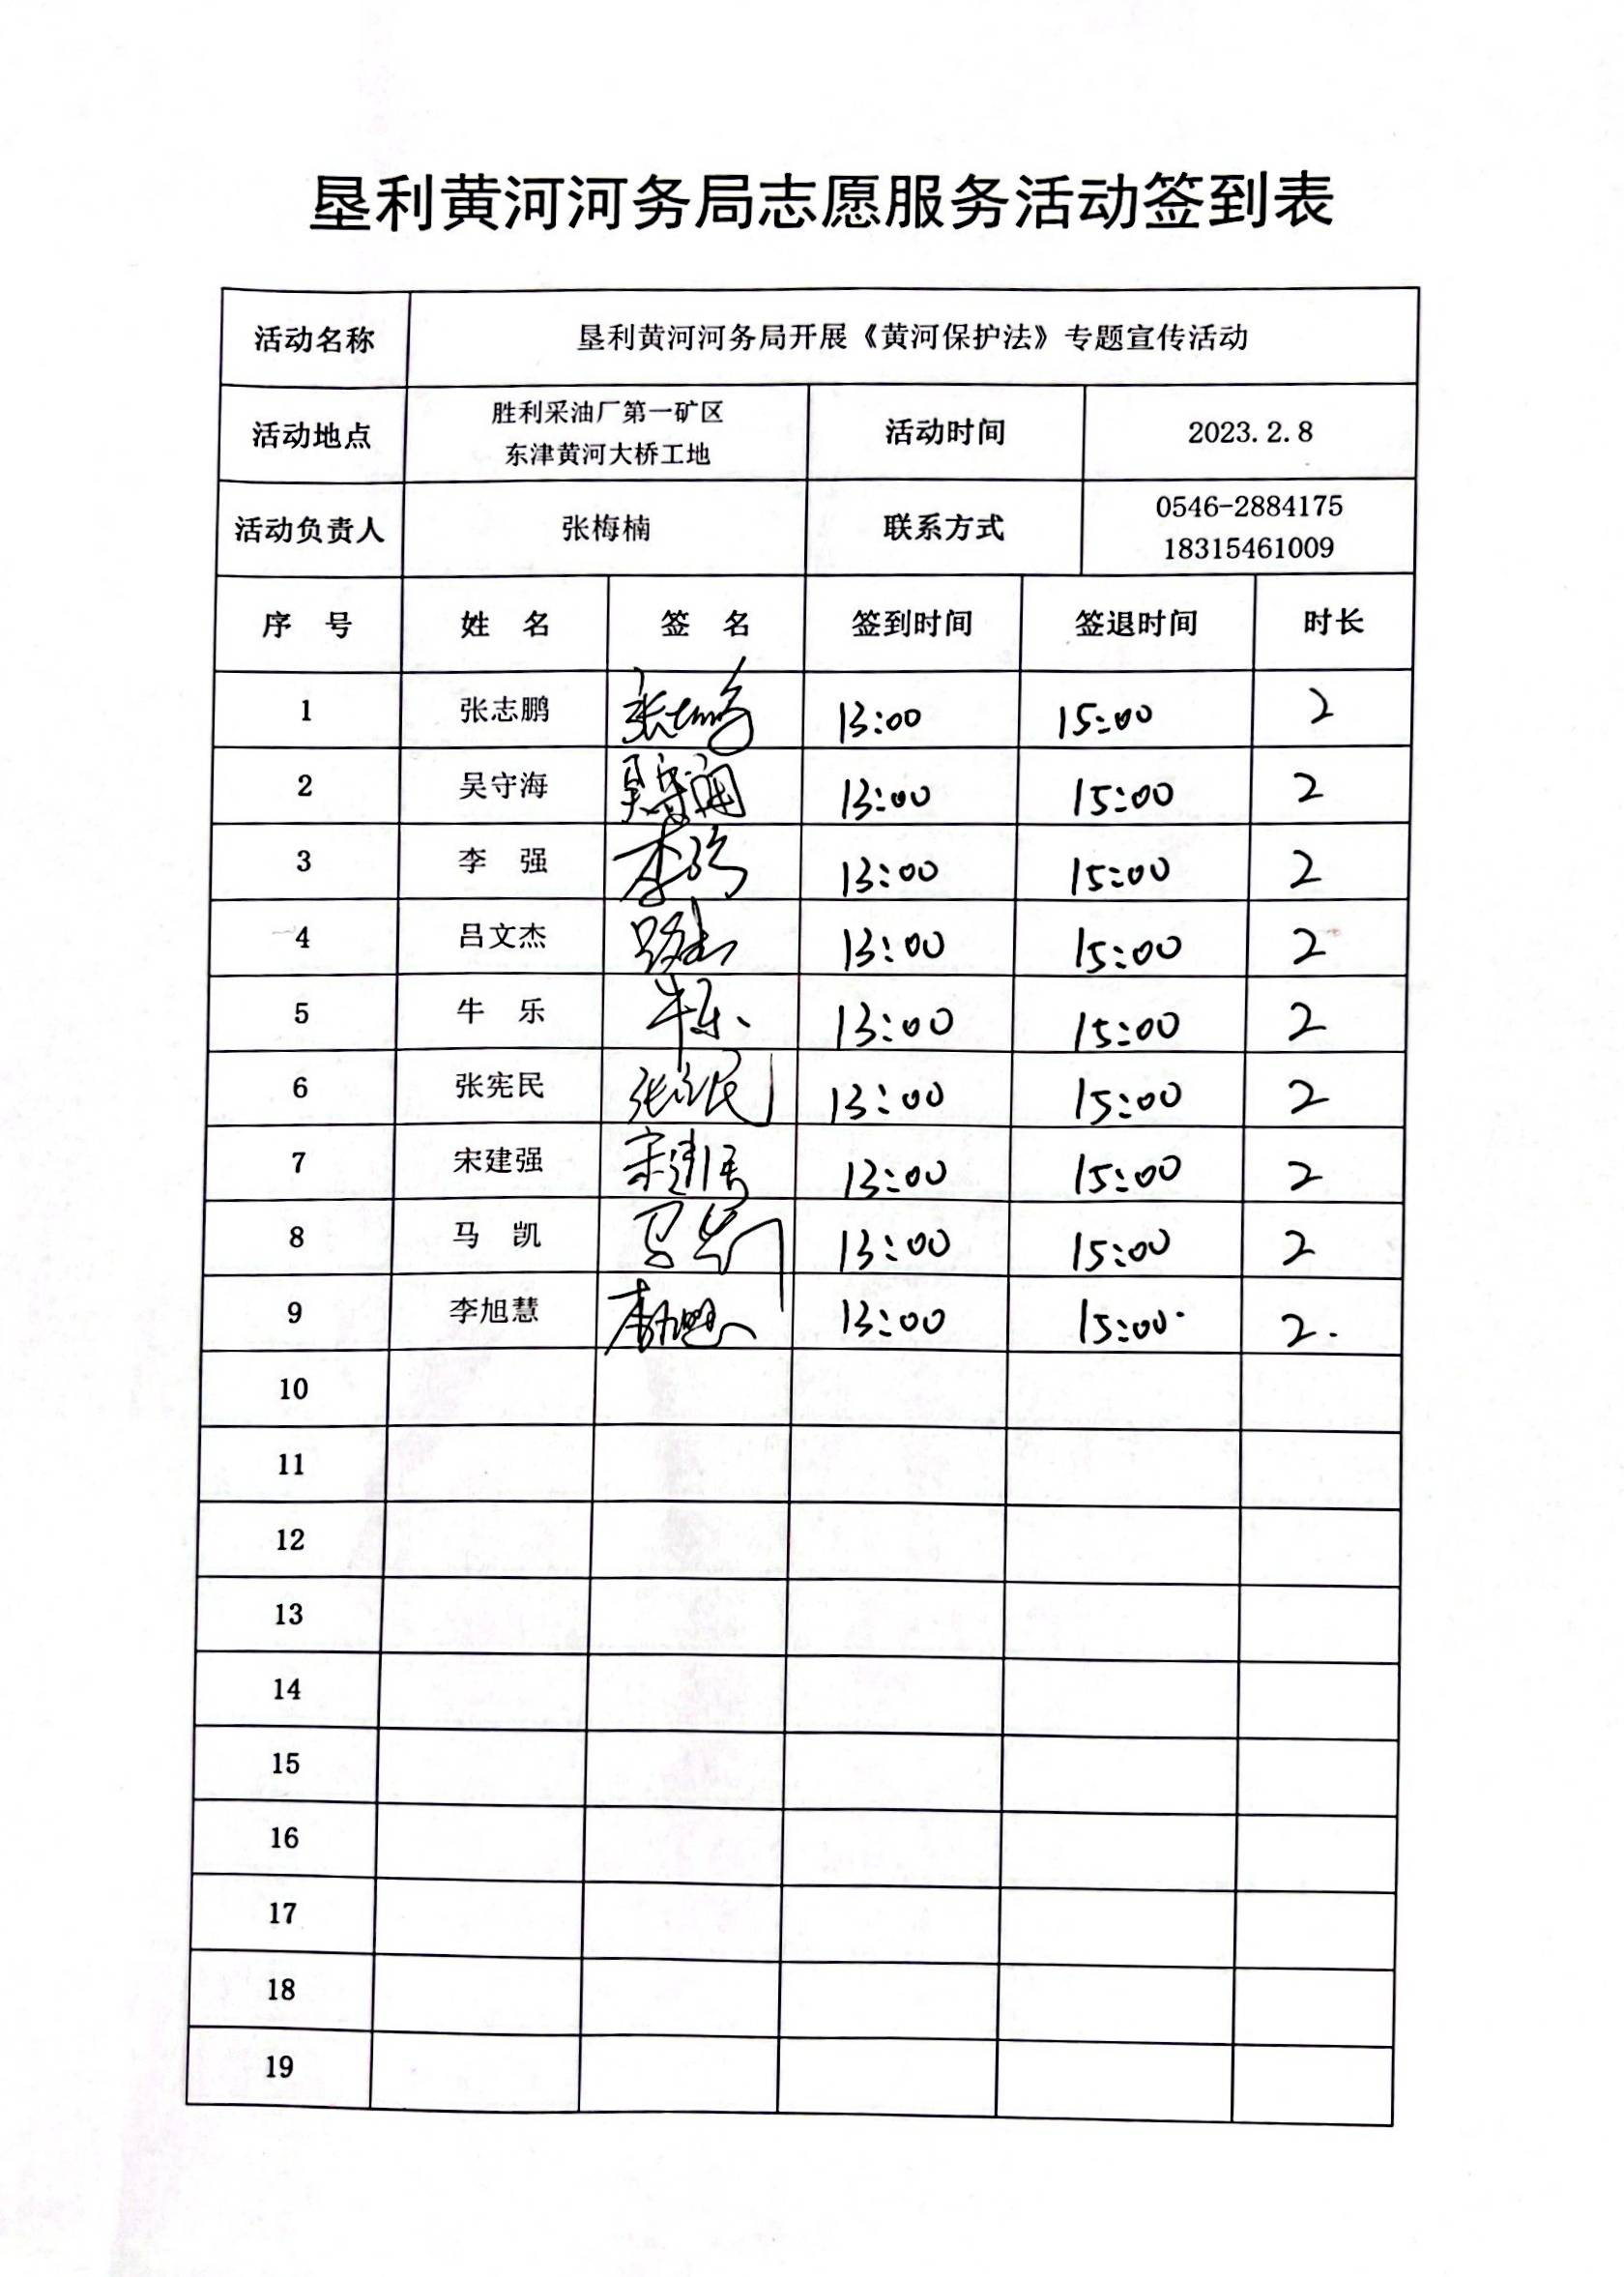 垦利黄河河务局志愿服务活动签到表
活动名称 垦利黄河河务局开展《黄河保护法》专题宣传活动
活动地点 胜利采油厂第一矿区 东津黄河大桥工地 活动时间 2023.2.8
活动负责人 张梅楠 联系方式 0546-2884175 18315461009
序 号 姓 名 签 名 签到时间 签退时间 时长
1 张志鹏 张志鹏 13:00 15:00 2
2 吴守海 吴守海 13:00 15:00 2
3 李 强 李强 13:00 15:00 2
4 吕文杰 吕文杰 13:00 15:00 2
5 牛 乐 牛乐 13:00 15:00 2
6 张宪民 张宪民 13:00 15:00 2
7 宋建强 宋建强 13:00 15:00 2
8 马 凯 马凯 13:00 15:00 2
9 李旭慧 李旭慧 13:00 15:00 2
10
11
12
13
14
15
16
17
18
19